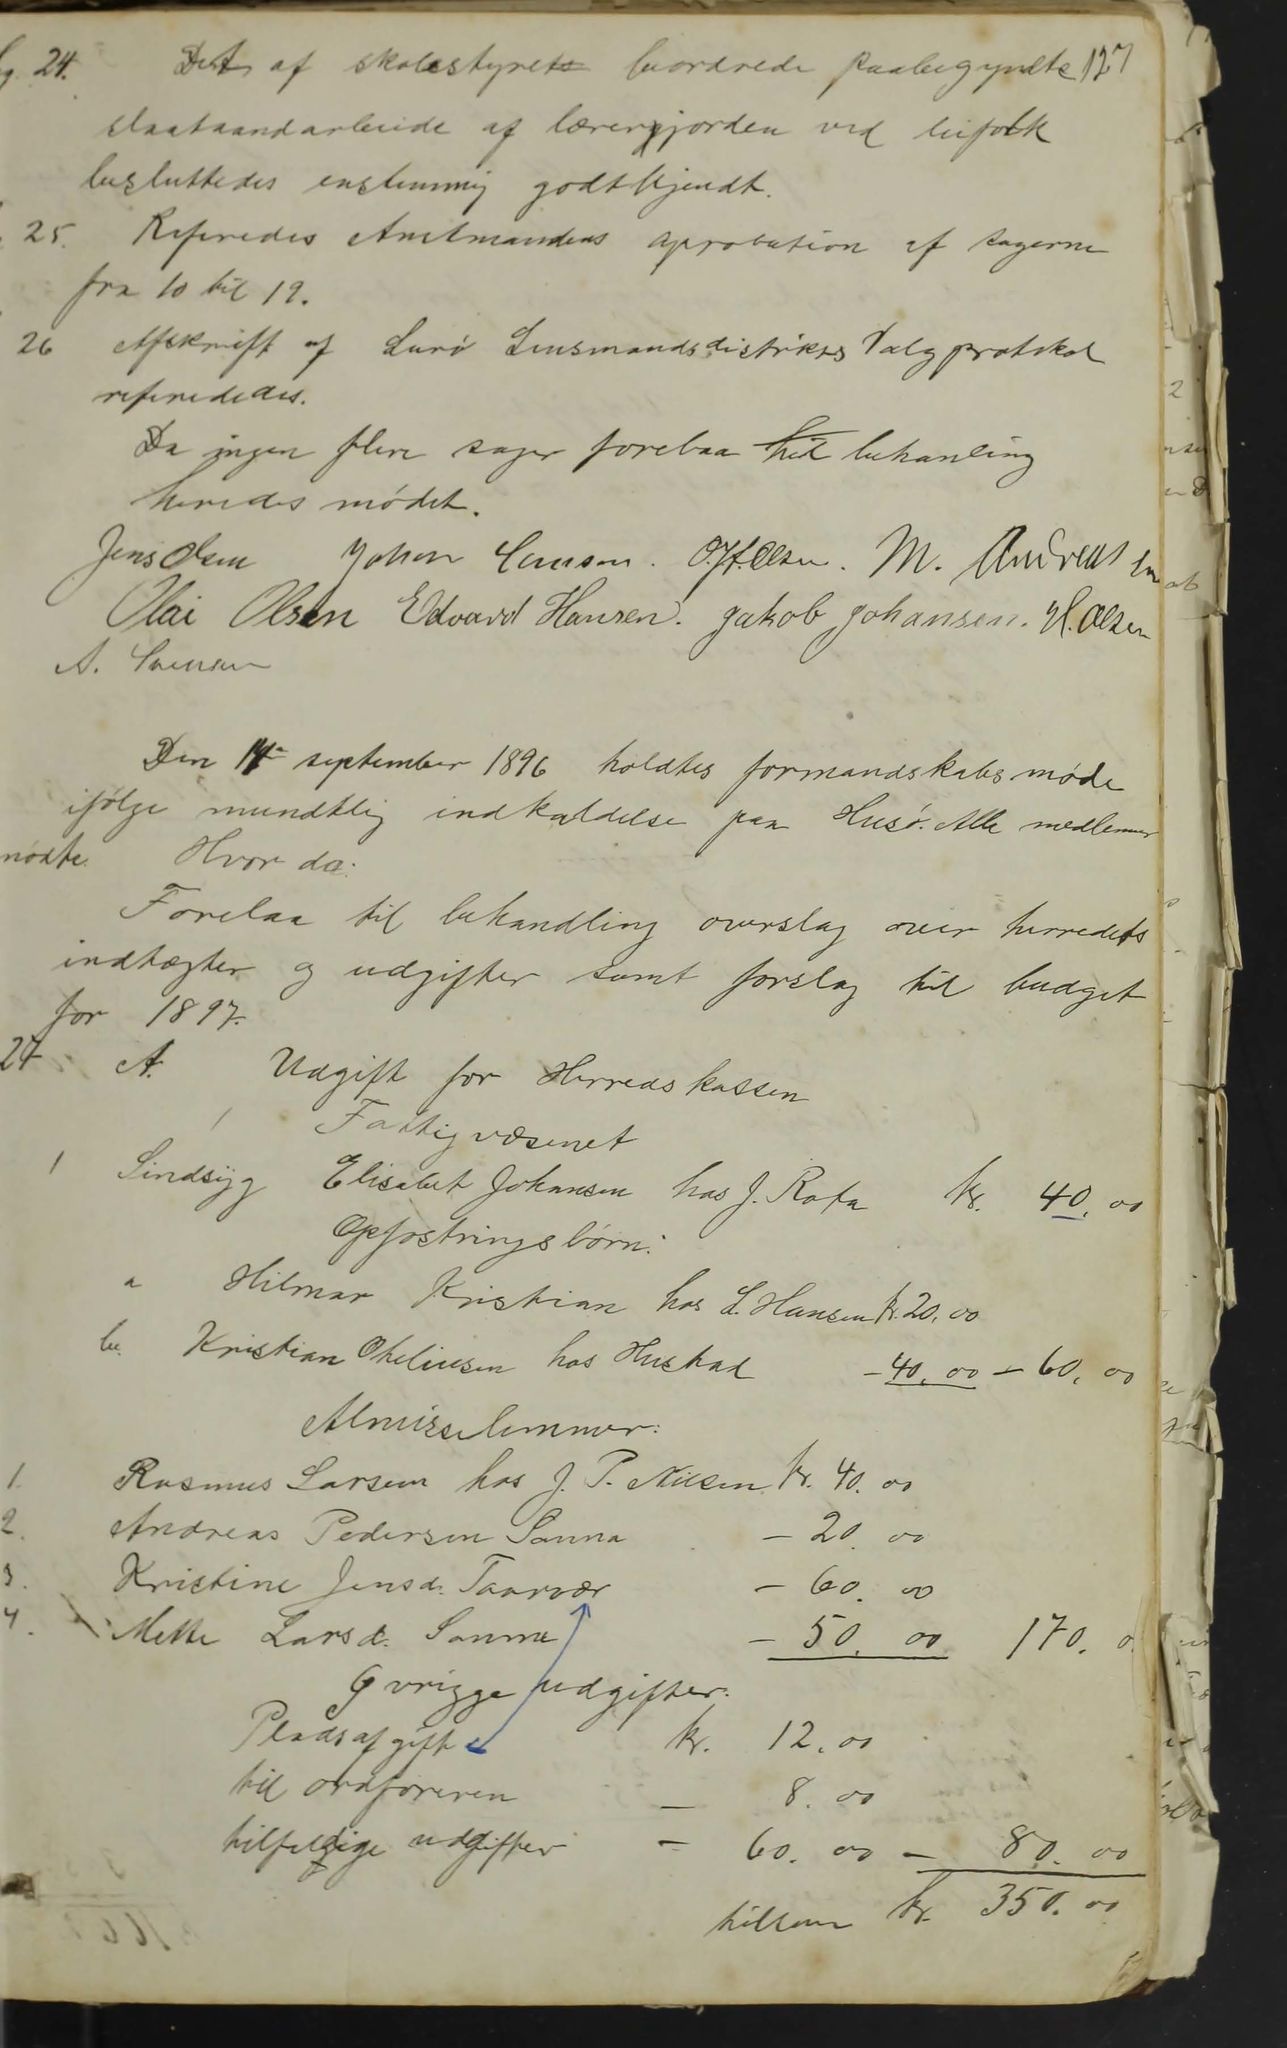 24. Det af skolestyret beordrede paabegyndte 127
slaataandarbeide af lærerjorden ved leifolk
besluttedes enstemmig godtkjendt.
25. Referedes Amtmandens aprobation af sagerne
fra 10 til 19.
26 Afskrift af Lurø Lensmandsdistrikts Valgprotokol
referededes.
Da ingen flere sager forelaa til behanling
hevedes mødet.
Jens Olsen Johan . O. J. Olsen. M. Andreassen
Olai Olsen Edvard Hansen. Jakob Johansen. H. Olsen
A.
Den 14de september 1896 holdtes formandskabsmøde
ifølge mundtlig indkaldelse paa Husø. Alle medlemmer
mødte. Hvor da:
Forelaa til behandling overslag over herredets
indtægter og udgifter samt forslag til budget
for 1897.
27 A. Udgift for Herredskassen
Fattigvæsenet
1 Sindsyg Elisabet Johansen hos J. Rota kr. 40.00
Opfostringsbørn:
a Hilmar Kristian hos L. Hansen kr. 20.00
b. Kristian Oheliusen hos Hustad - 40.00 - 60.00
Almisselemmer:
1. Rasmus Larsen hos J. P. Nilsen kr. 40.00
2. Andreas Pedersen Sanna - 20.00
3. Kristine Jensd. Taarvær - 60.00
4. Mette Larsd. Sanna - 50.00 170.0
Øvrigge udgifter.
Pladsafgift kr. 12.00
til ordføreren - 8.00
tilfeldige udgifter - 60.00 - 80.00
tilsam kr. 350.00